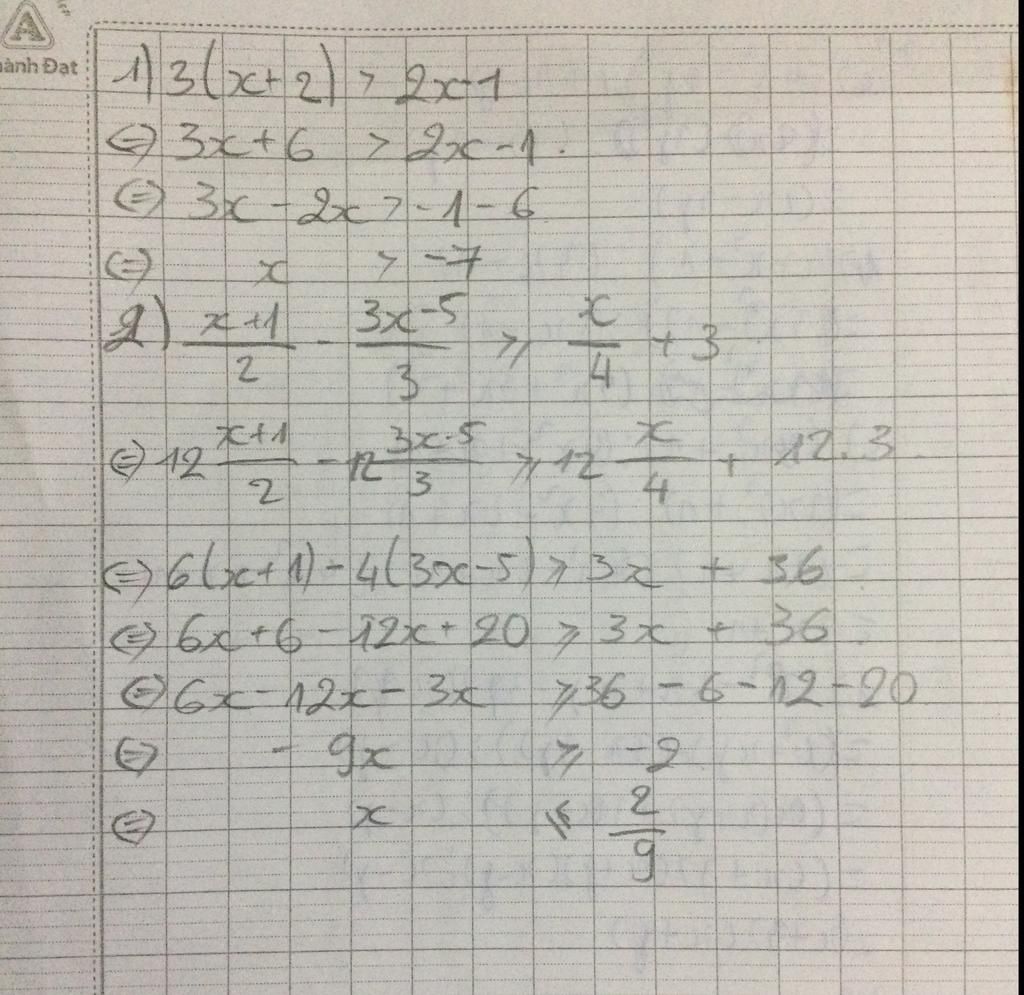 A
ành Đạt
1) 3(x+2) > 2x-1
⇔ 3x+6 > 2x-1.
⇔ 3x - 2x > -1 - 6
⇔ x > -7
2) \frac{x+1}{2} - \frac{3x-5}{3} ≥ \frac{x}{4} + 3
⇔ 12 \frac{x+1}{2} - 12 \frac{3x-5}{3} ≥ 12 \frac{x}{4} + 12.3
⇔ 6(x+1) - 4(3x-5) ≥ 3x + 36
⇔ 6x+6 - 12x+20 ≥ 3x + 36
⇔ 6x - 12x - 3x ≥ 36 - 6 - 12 - 20
⇔ - 9x ≥ -2
⇔ x ≤ \frac{2}{9}